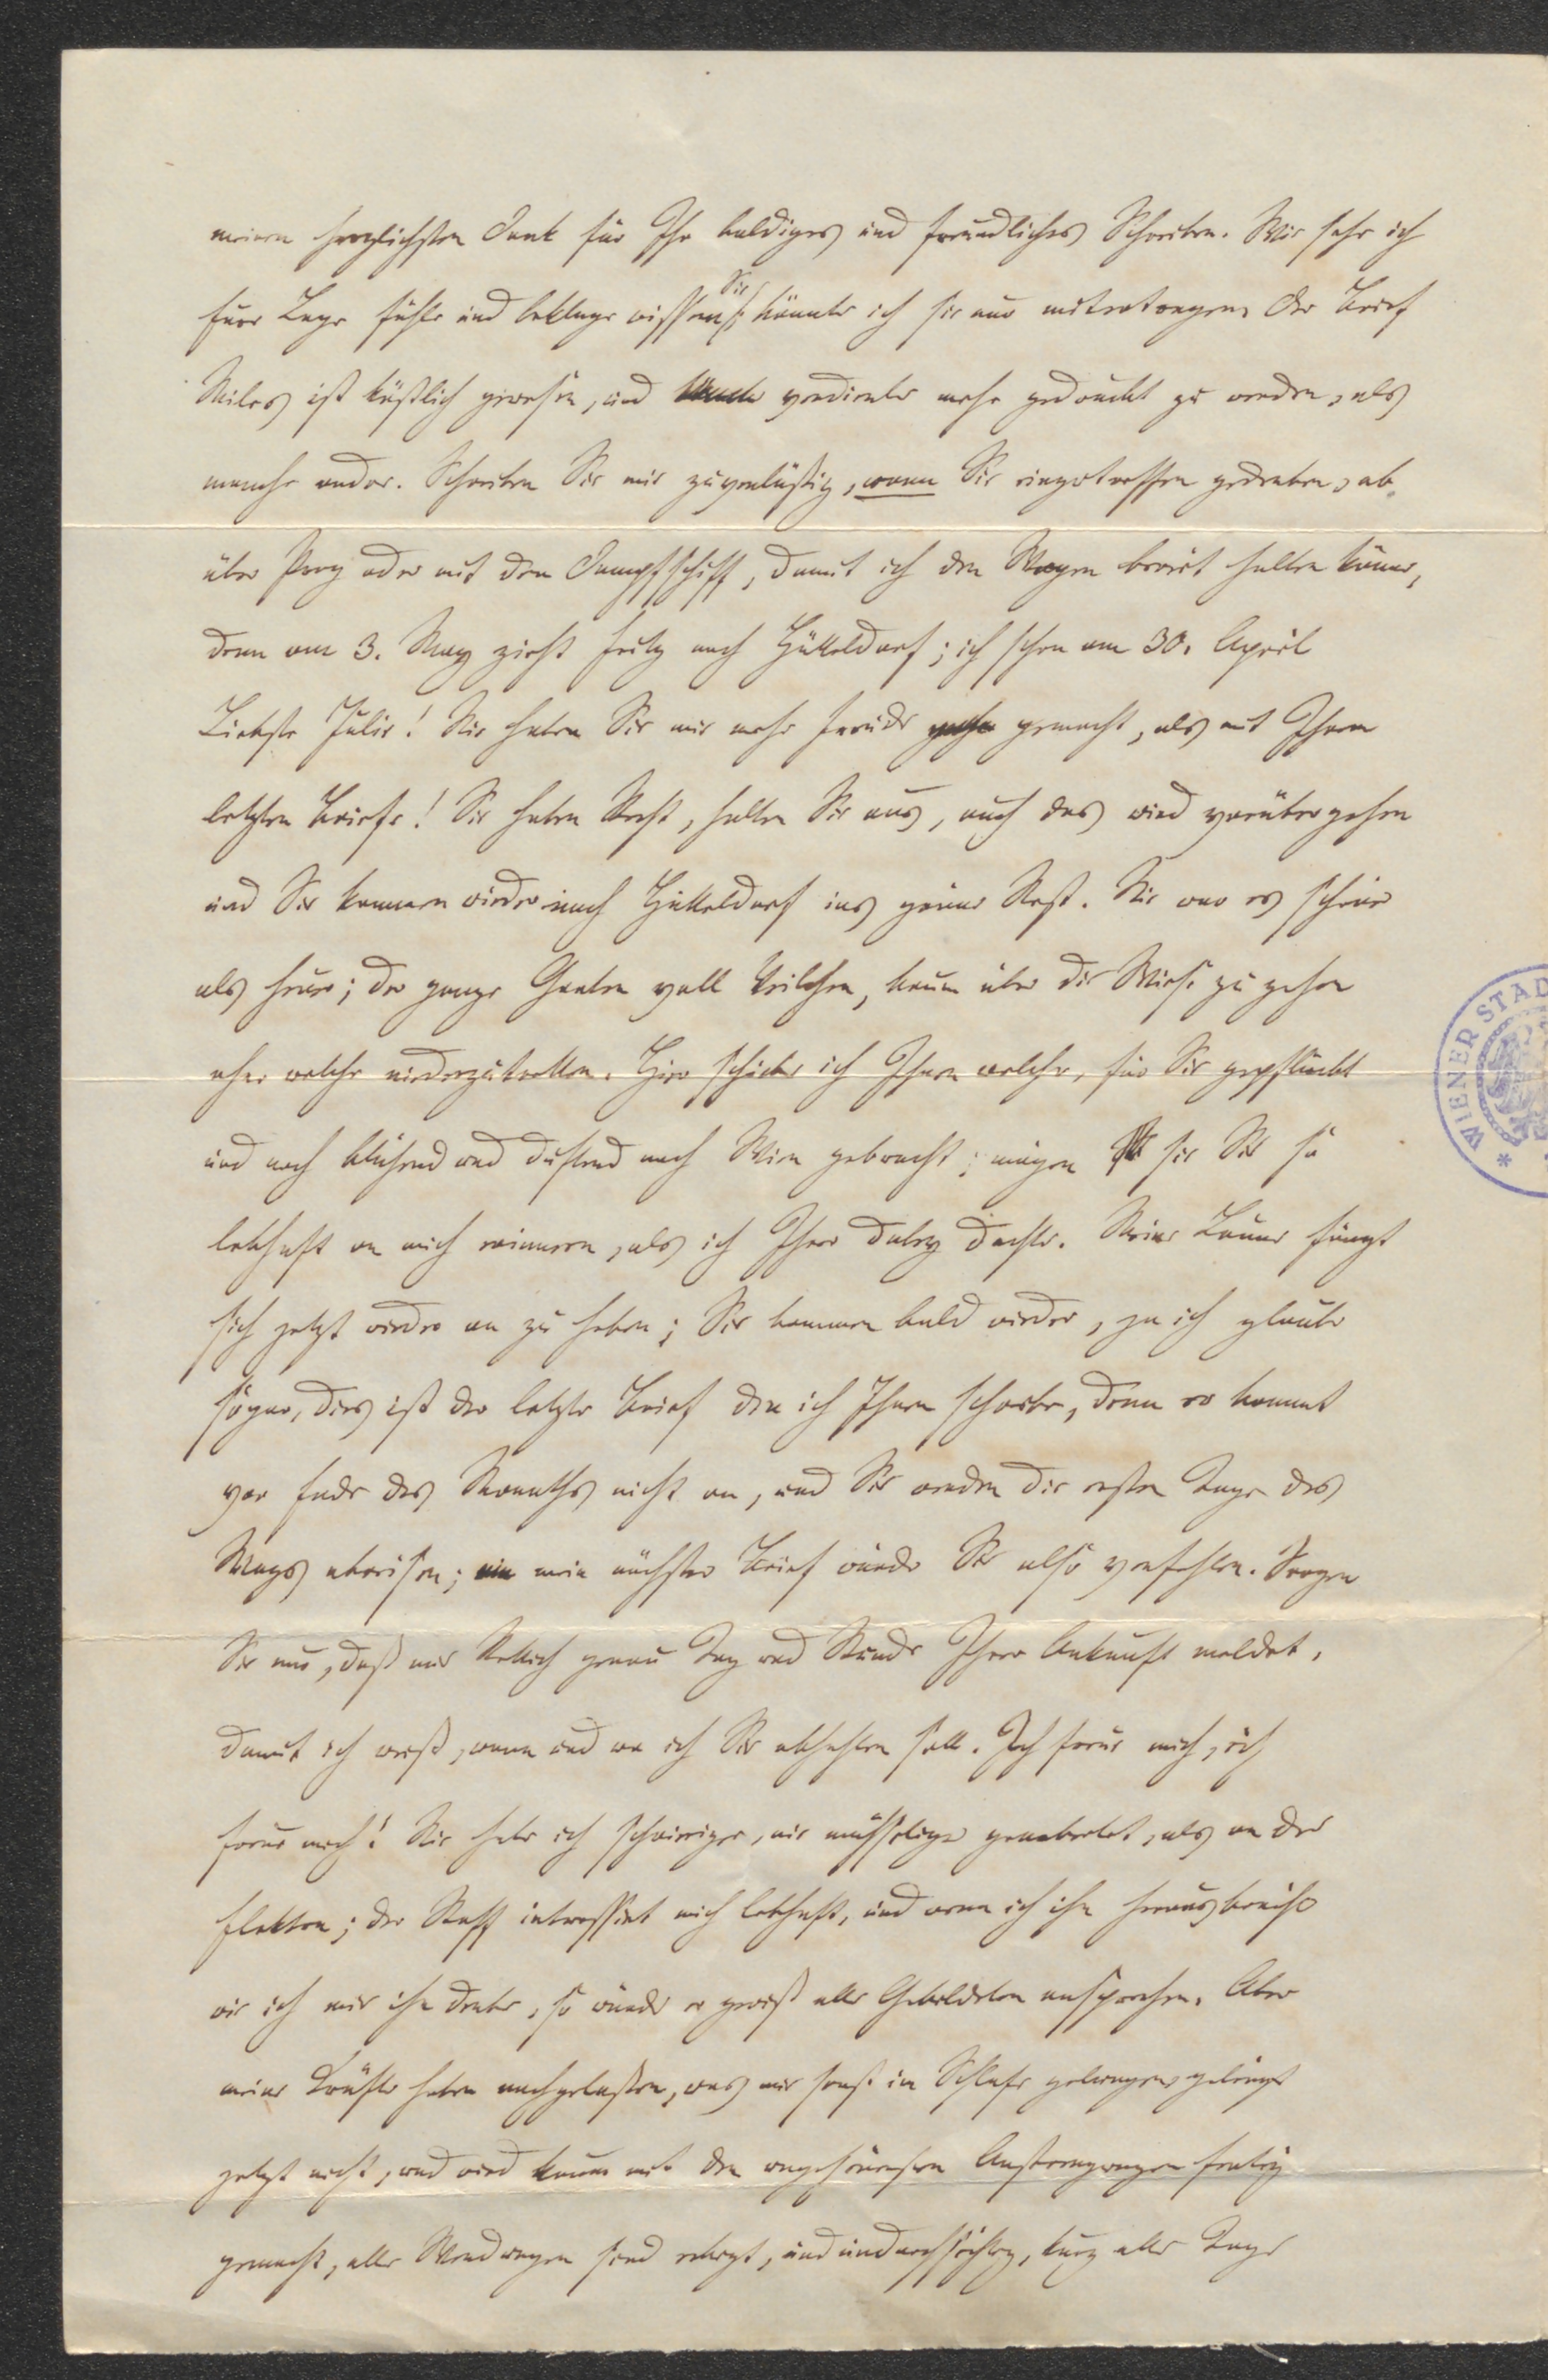 meinen herzlichsten Dank für Ihr baldiges und freundliches Schreiben. Wie sehr ich
Eure Lage fühle und beklage wissen Sie; könnte ich sie nur mitertragen. Der Brief
Miles ist köstlich gewesen, und verdiente mehr gedruckt zu werden, als
manche andre. Schreiben Sie mir zuverläßig, wann Sie einzutreffen gedenken, ob
über Prag oder mit dem Dampfschiff, damit ich den Wagen bereit halten könne,
denn am 3. May zieht Fritz nach Hütteldorf; ich schon am 30. April
Liebste Julie! Nie haben Sie mir mehr Freude gemacht, als mit Ihrem
letzten Briefe! Sie haben Recht, halten Sie aus, auch das wird vorübergehen
und Sie kommen wieder nach Hütteldorf ins grüne Nest. Nie war es schöner
als heuer; der ganze Garten voll Veilchen, kaum über die Wiese zu gehen
ohne welche niederzutretten. Hier schicke ich Ihnen welche, für Sie gepflückt
und noch blühend und duftend nach Wien gebracht; mögen sie Sie so
lebhaft an mich erinnern, als ich Ihrer dabey dachte. Meine Laune fängt
sich jetzt wieder an zu heben; Sie kommen bald wieder, ja ich glaube
sogar, dies ist der letzte Brief den ich Ihnen schreibe, denn er kommt
vor Ende des Monaths nicht an, und Sie werden die ersten Tage des
Mays abreisen; mein nächster Brief würde Sie also verfehlen. Sorgen
Sie nur, daß mir Rettich genau Tag und Stunde Ihrer Ankunft meldet,
damit ich weiß, wann und wo ich Sie abhohlen soll. Ich freue mich, ich
freue mich! Nie habe ich schwieriger, nie mühseliger gearbeitet, als an der
Elektra; der Stoff interessirt mich lebhaft, und wenn ich ihn herausbringe
wie ich mir ihn denke, so würde er gewiß alle Gebildeten ansprechen. Aber
meine Kräfte haben nachgelassen, was mir sonst im Schlafe gelungen, gelingt
jetzt nicht, und wird kaum mit den ungeheuersten Anstrengungen fertig
gemacht, alle Wendungen sind gelegt, und undurchsichtig, kurz alle Tage
WIENER STAD